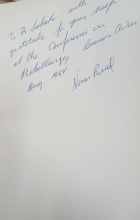 To Dr Sabato with
gratitude for your help
at the Conference on
Metallurgy, Buenos Aires
Aug. 1964